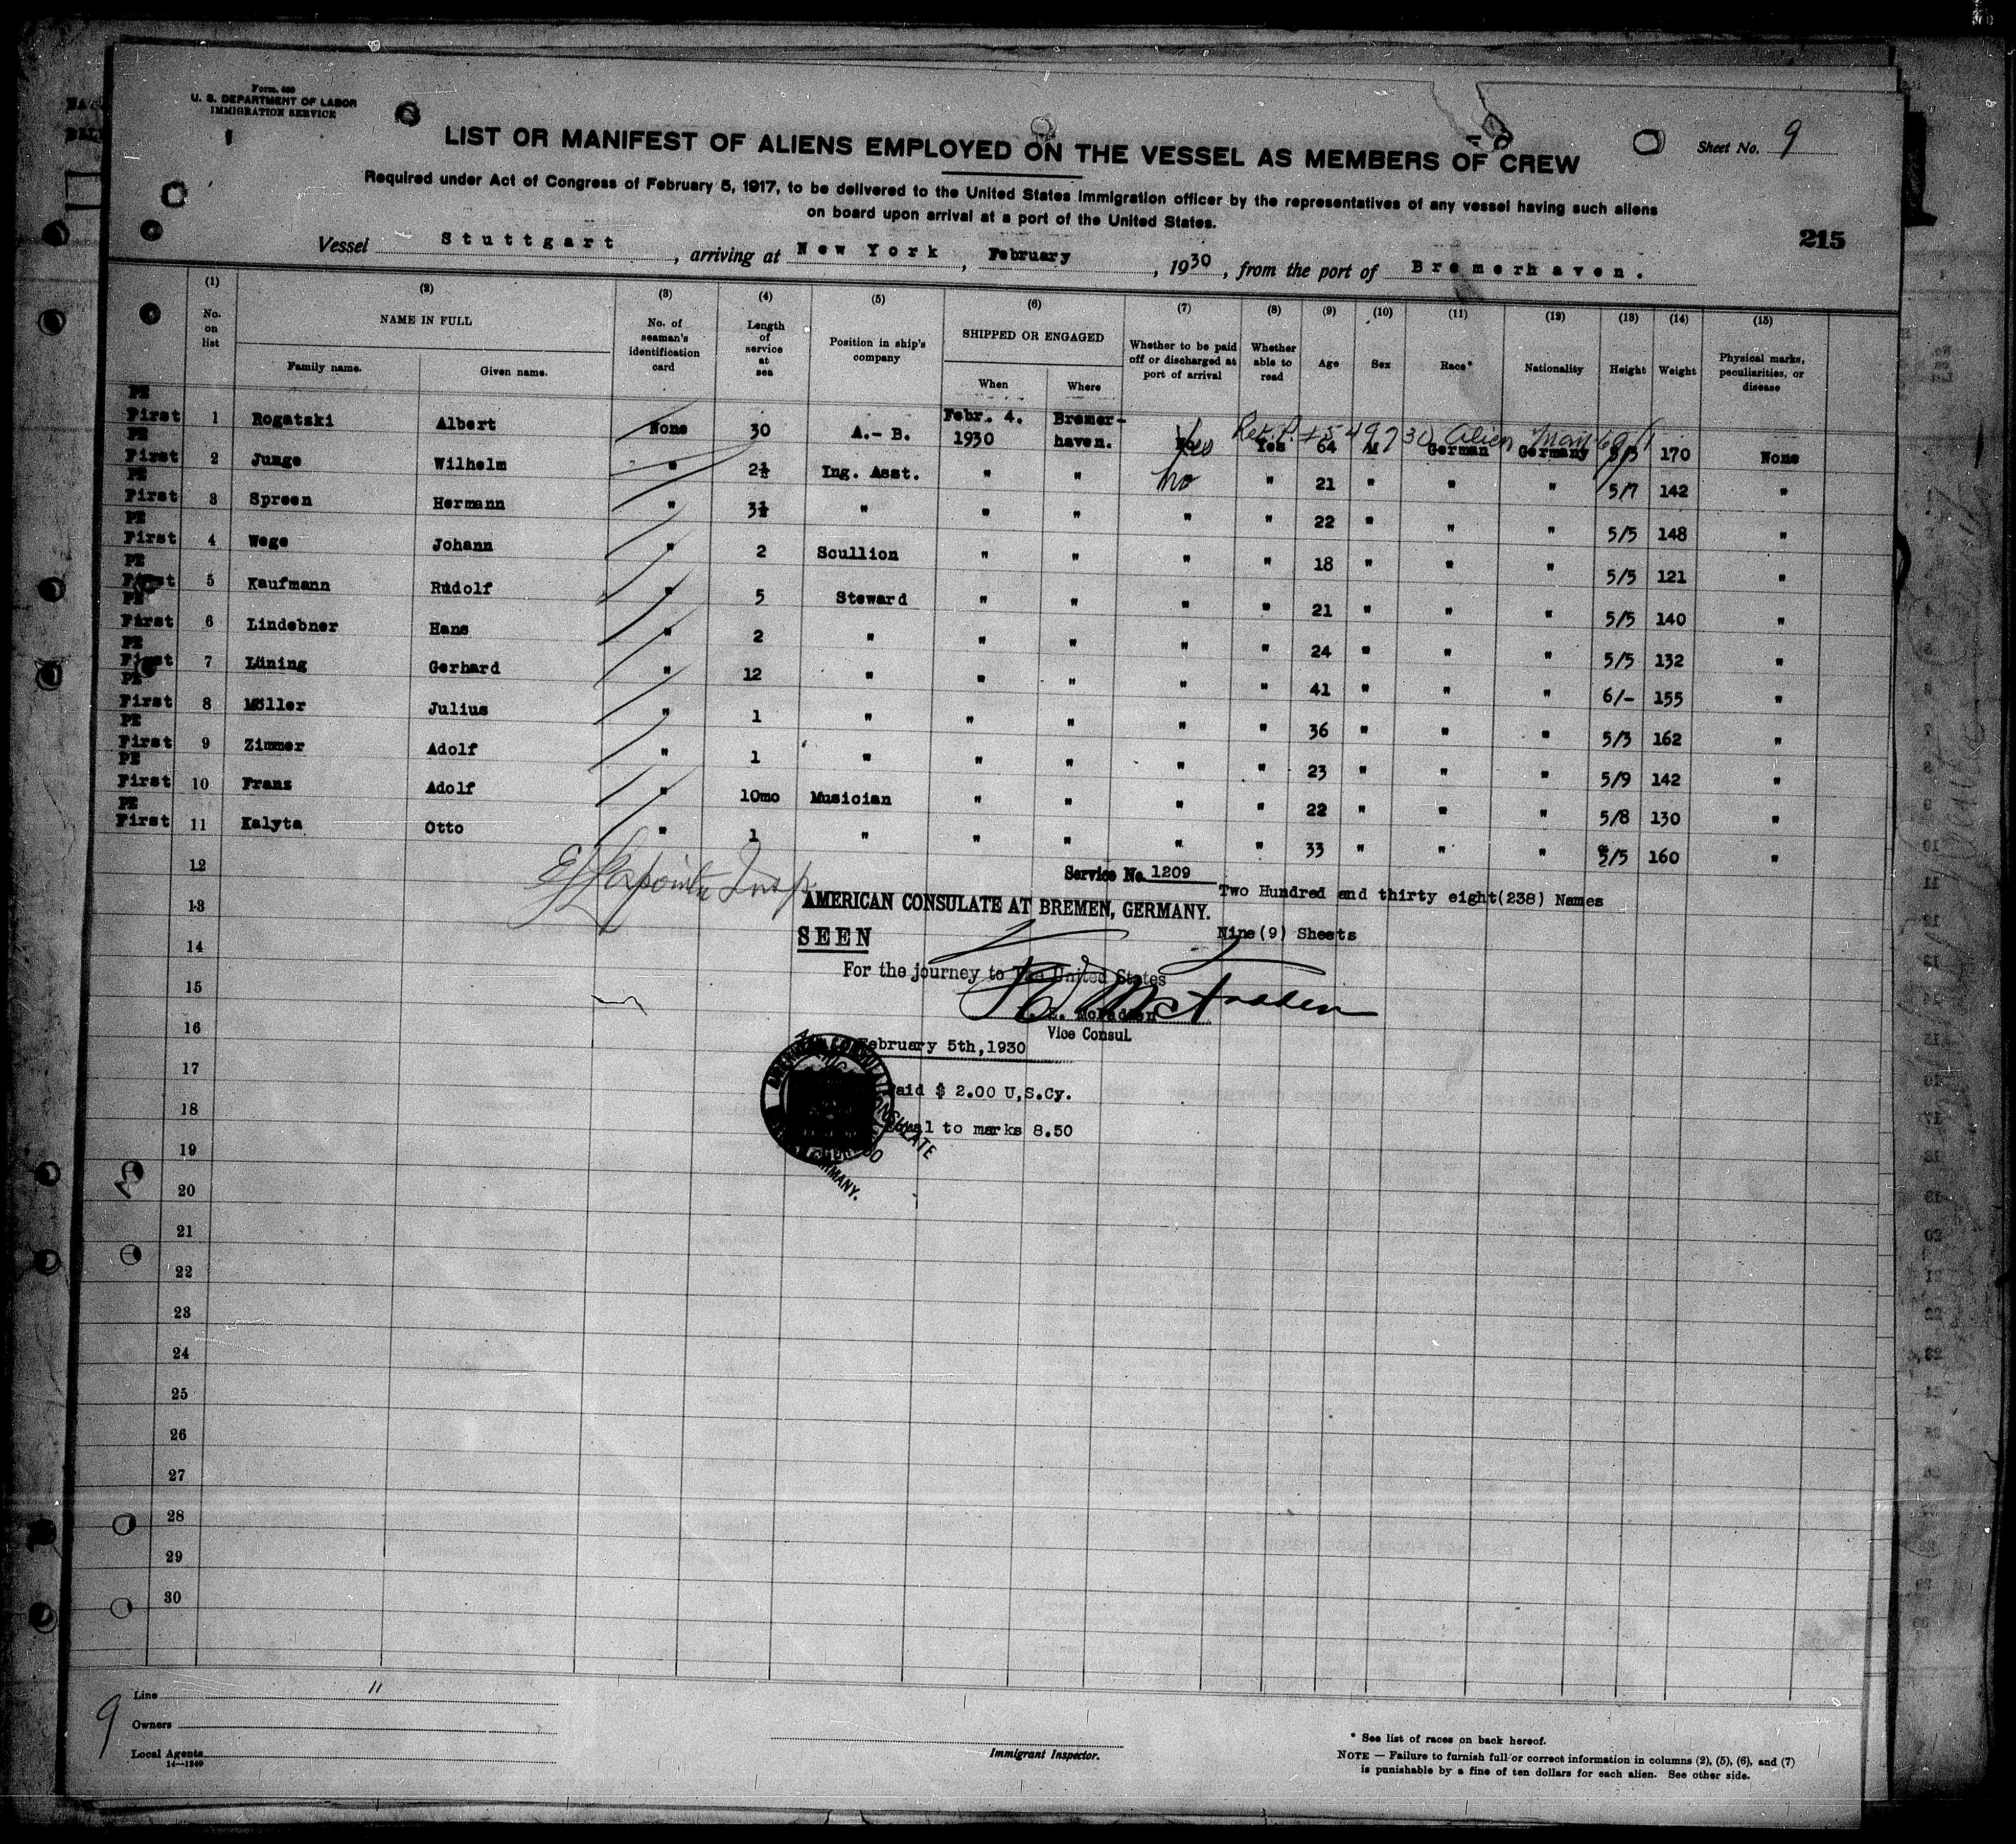 Form 680
U. S. DEPARTMENT OF LABOR
IMMIGRATION SERVICE
LIST OR MANIFEST OF ALIENS EMPLOYED ON THE VESSEL AS MEMBERS OF CREW
Sheet No. 9
Required under Act of Congress of February 5, 1917, to be delivered to the United States immigration officer by the representatives of any vessel having such aliens
on board upon arrival at a port of the United States.
215
Vessel Stuttgart, arriving at New York, February, 1930, from the port of Bremerhaven.
(1) (2) (3) (4) (5) (6) (7) (8) (9) (10) (11) (12) (13) (14) (15)
No. on list NAME IN FULL Family name. Given name. No. of seaman's identification card Length of service at sea Position in ship's company SHIPPED OR ENGAGED When Where Whether to be paid off or discharged at port of arrival Whether able to read Age Sex Race* Nationality Height Weight Physical marks, peculiarities, or disease
PE
First 1 Rogatski Albert None 30 A.- B. Febr. 4. 1930 Bremerhaven. Yes Yes 64 M German Germany 5/5 170 None
PE
First 2 Junge Wilhelm " 2½ Ing. Asst. " " No " 21 " " " 5/7 142 "
PE
First 3 Spreen Hermann " 3½ " " " " " 22 " " " 5/5 148 "
PE
First 4 Wege Johann " 2 Scullion " " " " 18 " " " 5/5 121 "
PE
First 5 Kaufmann Rudolf " 5 Steward " " " " 21 " " " 5/5 140 "
PE
First 6 Lindebner Hans " 2 " " " " " 24 " " " 5/5 132 "
PE
First 7 Lüning Gerhard " 12 " " " " " 41 " " " 6/- 155 "
PE
First 8 Möller Julius " 1 " " " " " 36 " " " 5/3 162 "
PE
First 9 Zimmer Adolf " 1 " " " " " 23 " " " 5/9 142 "
PE
First 10 Franz Adolf " 10mo Musician " " " " 22 " " " 5/8 130 "
PE
First 11 Kalyta Otto " 1 " " " " " 33 " " " 5/5 160 "
12
Service No. 1209
Two Hundred and thirty eight(238) Names
13
AMERICAN CONSULATE AT BREMEN, GERMANY.
Nine(9) Sheets
14
SEEN
For the journey to The United States
15
16
Vice Consul
February 5th,1930
17
Paid $ 2.00 U.S.Cy.
18
Equal to marks 8.50
19
20
21
22
23
24
25
26
27
28
29
30
9
Line 11
Owners
Local Agents
14—1240
Immigrant Inspector.
* See list of races on back hereof.
NOTE — Failure to furnish full or correct information in columns (2), (5), (6), and (7)
is punishable by a fine of ten dollars for each alien. See other side.